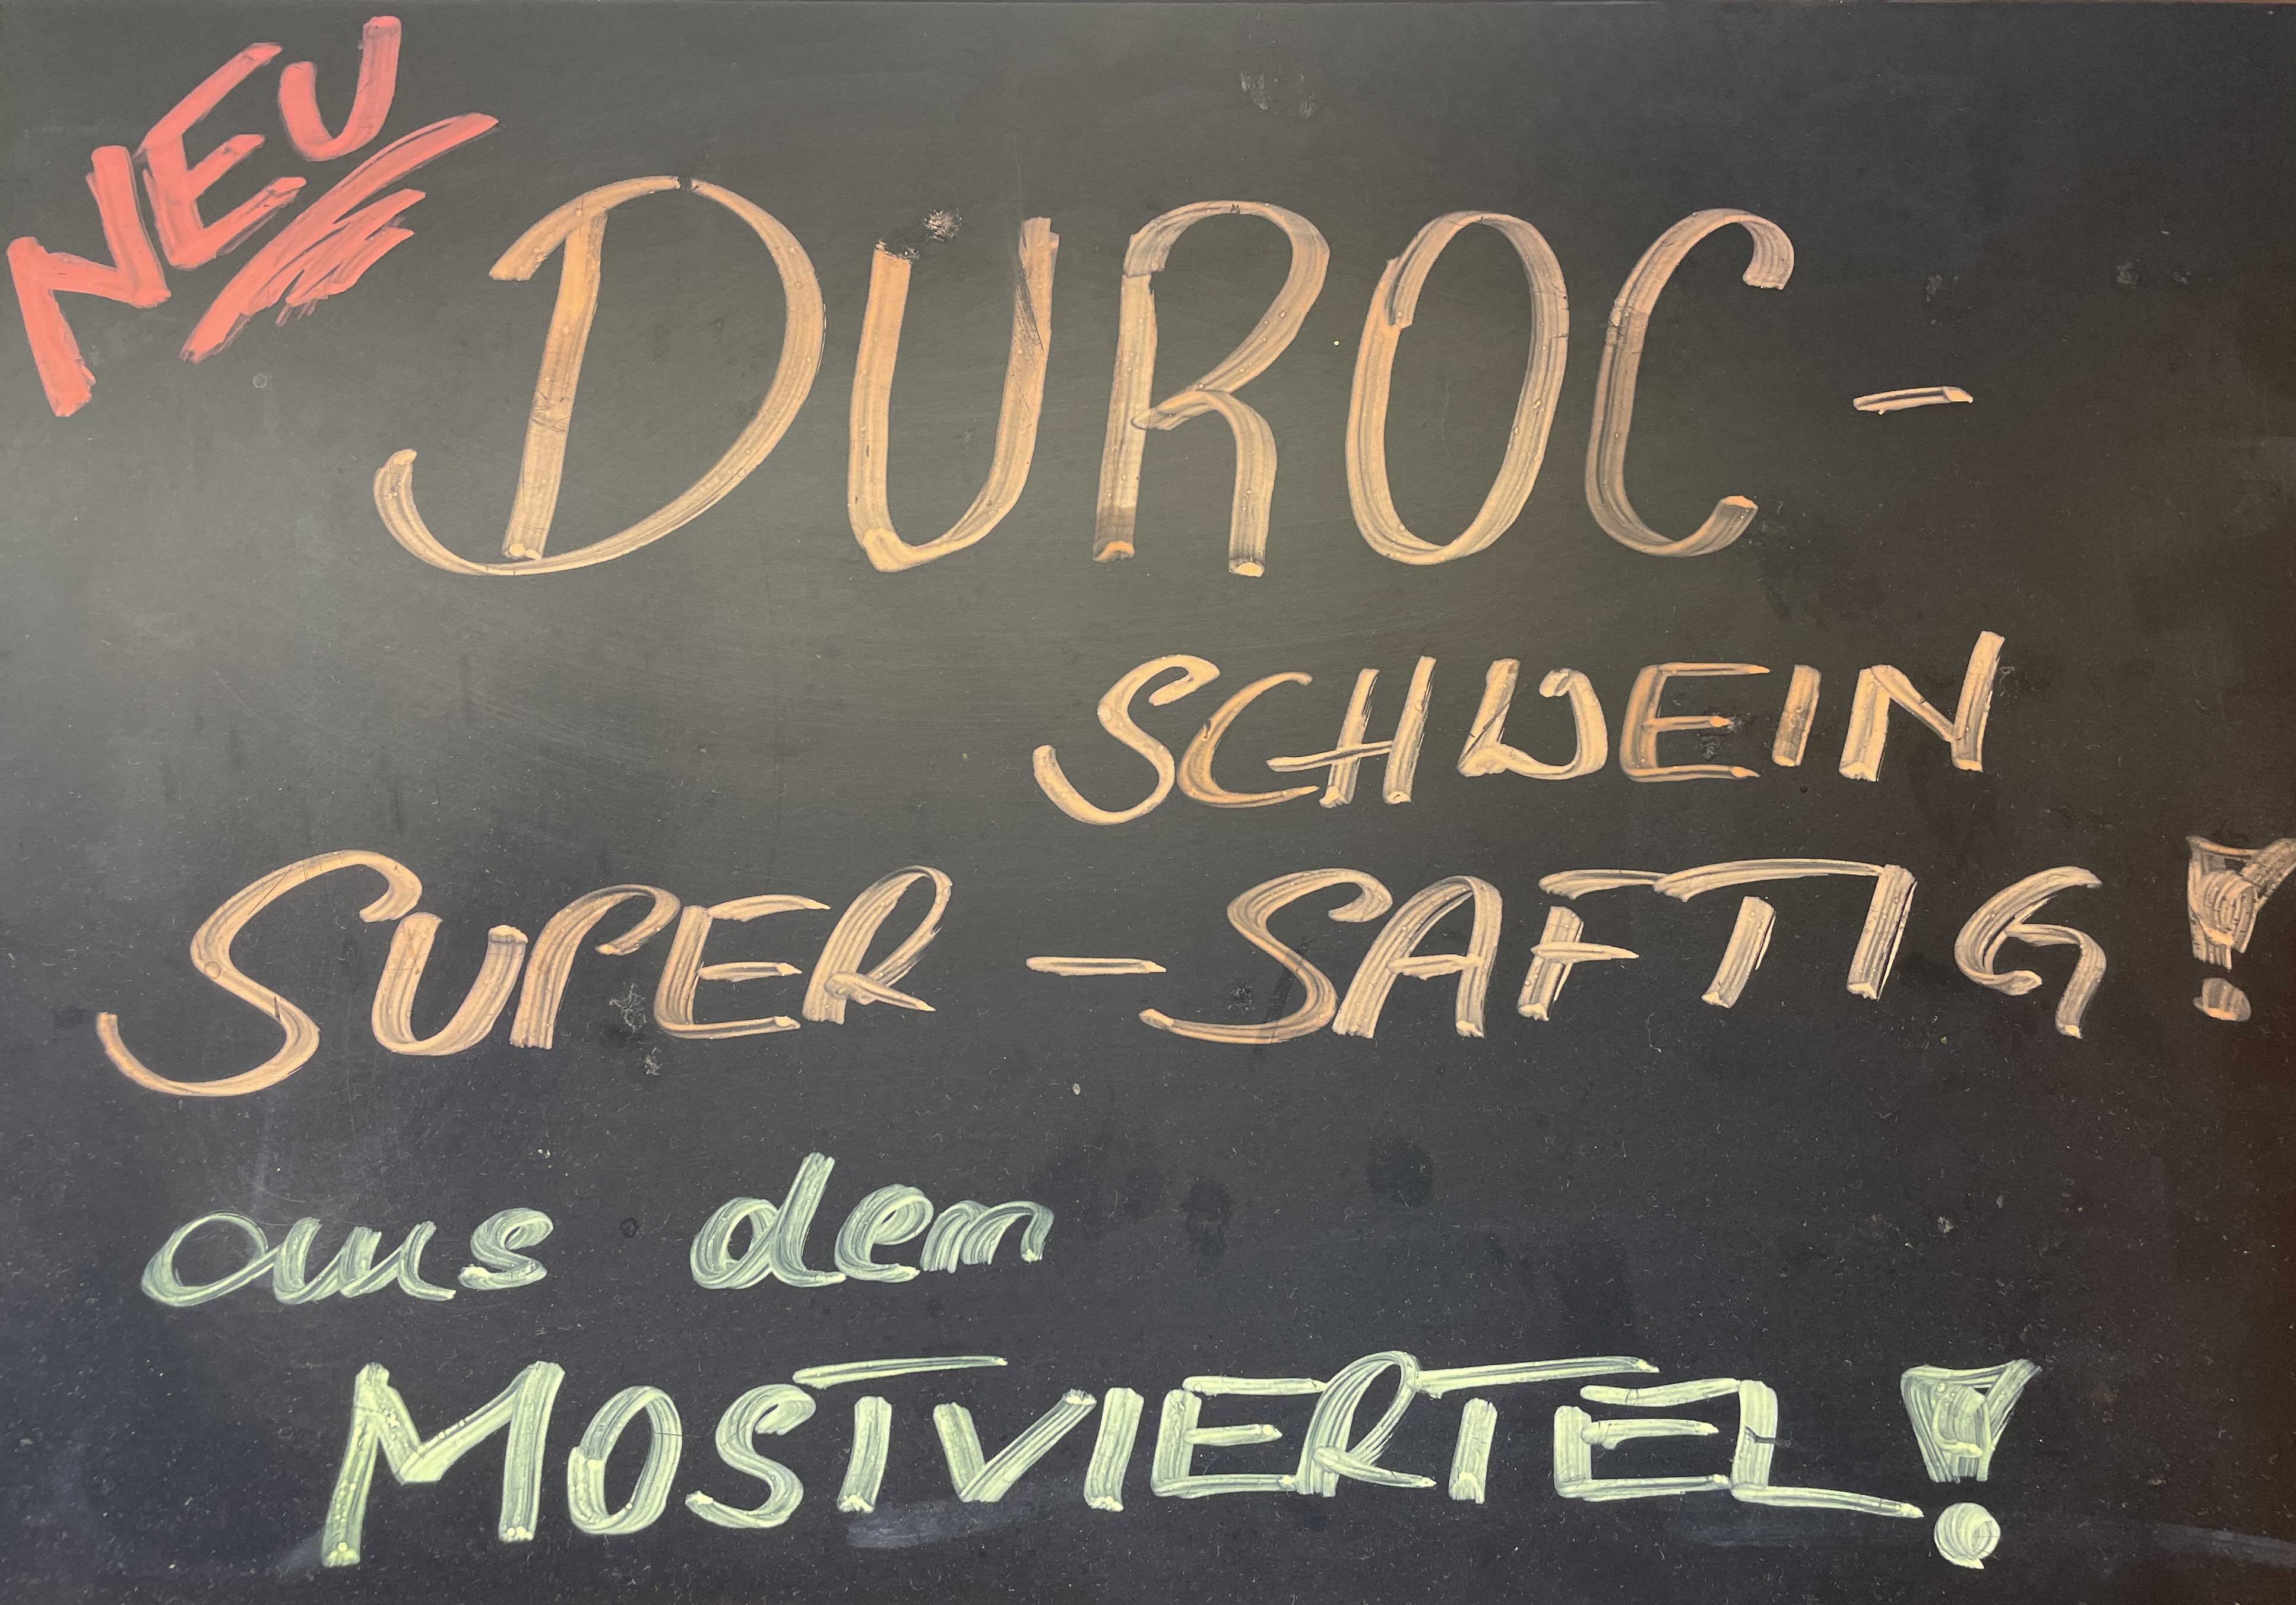 NEU
DUROC-
SCHWEIN
SUPER-SAFTIG!
aus dem
MOSTVIERTEL!